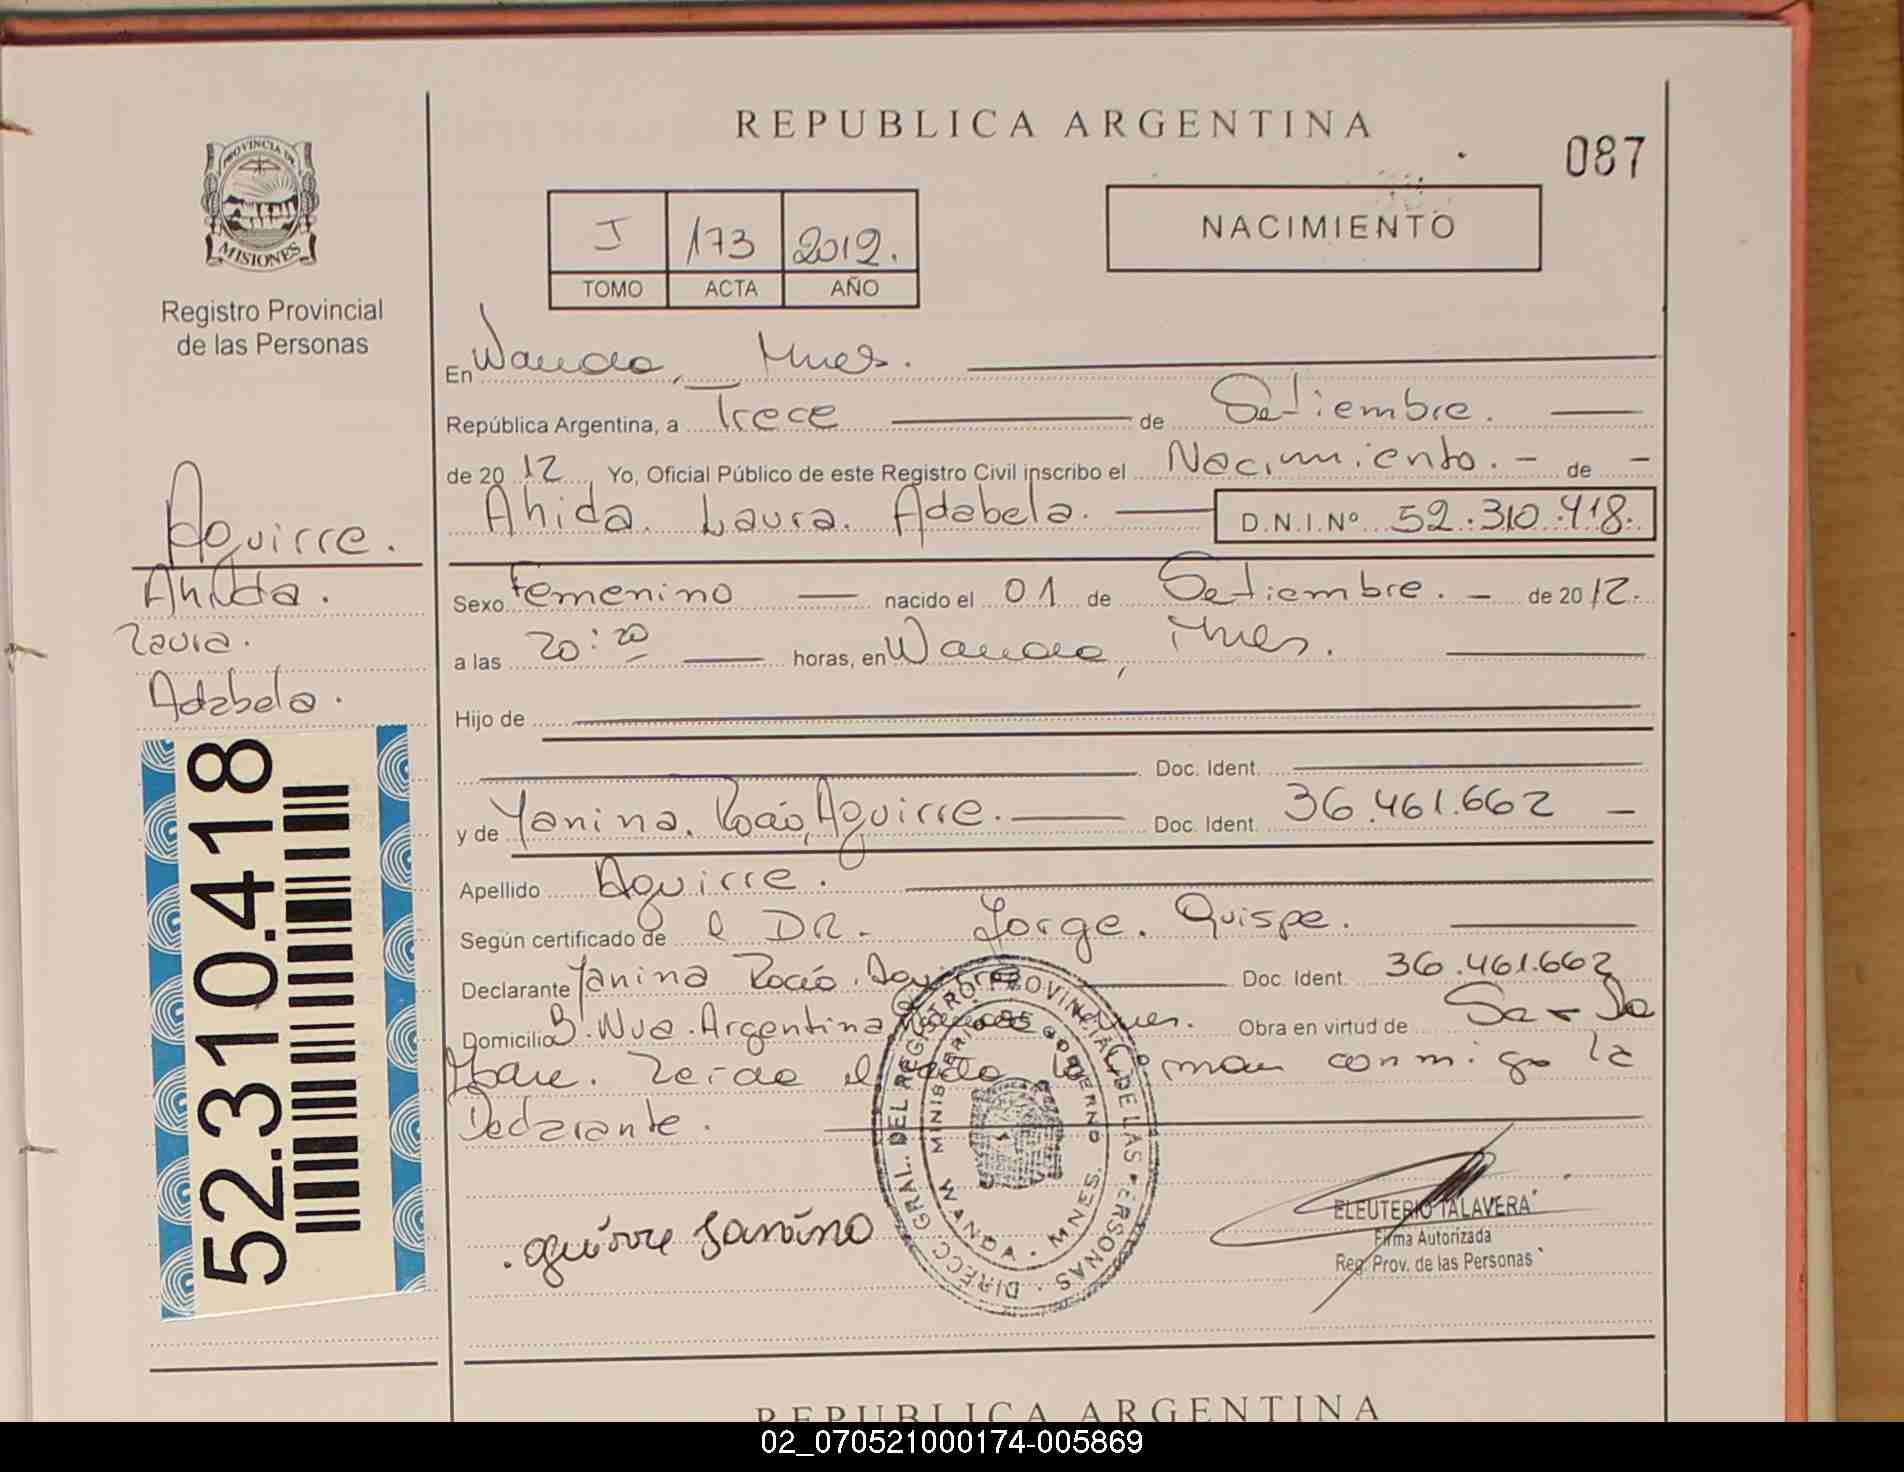 REPUBLICA ARGENTINA
087
PROVINCIA DE
MISIONES
Registro Provincial
de las Personas
J 173 2012.
TOMO ACTA AÑO
NACIMIENTO
En Wanda, Mnes.
República Argentina, a Trece de Setiembre.
de 20 12 Yo, Oficial Público de este Registro Civil inscribo el Nacimiento. - de -
Ahida. Laura. Adabela. D.N.I.Nº 52.310.418.
Aguirre.
Ahida.
Laura.
Adabela.
52.310.418
Sexo Femenino nacido el 01 de Setiembre. - de 20 12.
a las 20:20 horas, en Wanda, Mnes.
Hijo de
Doc. Ident.
y de Yanina. Rocío, Aguirre. Doc. Ident. 36.461.662 -
Apellido Aguirre.
Según certificado de el DR. Jorge. Quispe.
Declarante Yanina Rocío. Aguirre Doc. Ident. 36.461.662
Domicilio B. Nva. Argentina Wanda Mnes. Obra en virtud de Ser La
Madre. Leida el Acta la firman conmigo la
Declarante.
DIRECC GRAL. DEL REGISTRO PROVINCIAL DE LAS PERSONAS
MINISTERIO DE GOBIERNO
WANDA - MNES.
Aguirre Yanina
ELEUTERIO TALAVERA
Firma Autorizada
Reg. Prov. de las Personas
REPUBLICA ARGENTINA
02_070521000174-005869